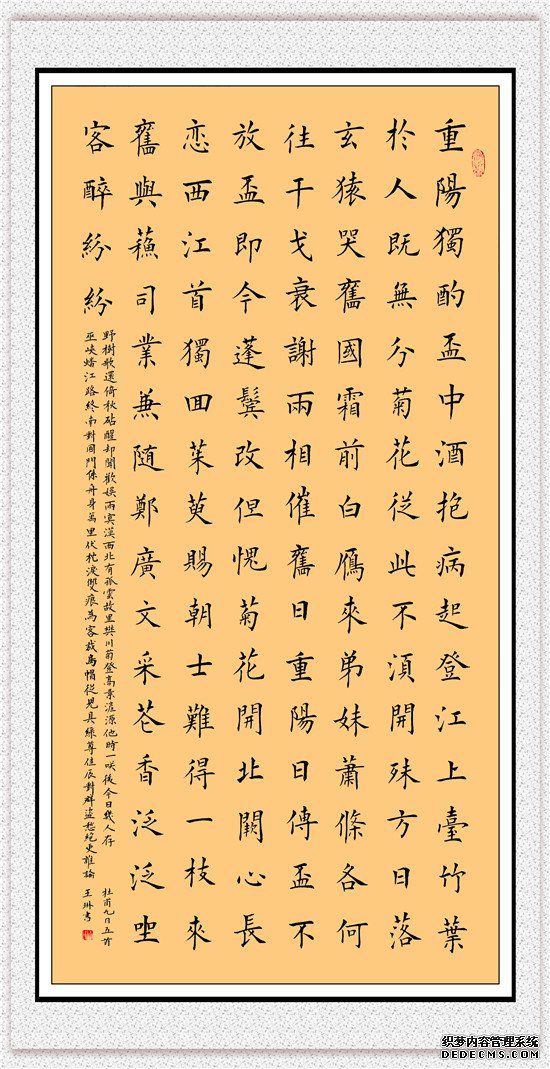 重陽獨酌盃中酒抱病起登江上臺竹葉
於人既無分菊花從此不須開殊方日落
玄猿哭舊國霜前白鴈來弟妹蕭條各何
往干戈衰謝兩相催舊日重陽日傳盃不
放盃即今蓬鬢改但愧菊花開北闕心長
恋西江首獨回茱萸賜朝士難得一枝來
舊與蘇司業兼隨鄭廣文采花香泛泛坐
客醉紛紛
野樹歌還倚秋砧醒却聞歡娛兩冥漠西北有孤雲故里樊川菊登高素滻源他時一笑後今日幾人存
巫峽蟠江路終南對國門係舟身萬里伏枕淚雙痕為客裁烏帽從兒具緑尊佳辰對群盜愁絕更誰論
杜甫九日五首
王琳書
织梦内容管理系统
DEDECMS.COM